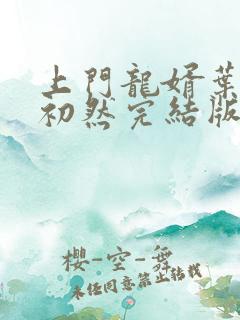 上門龍婿葉
初然完結版
櫻-空-舞
未任同意禁止轉載